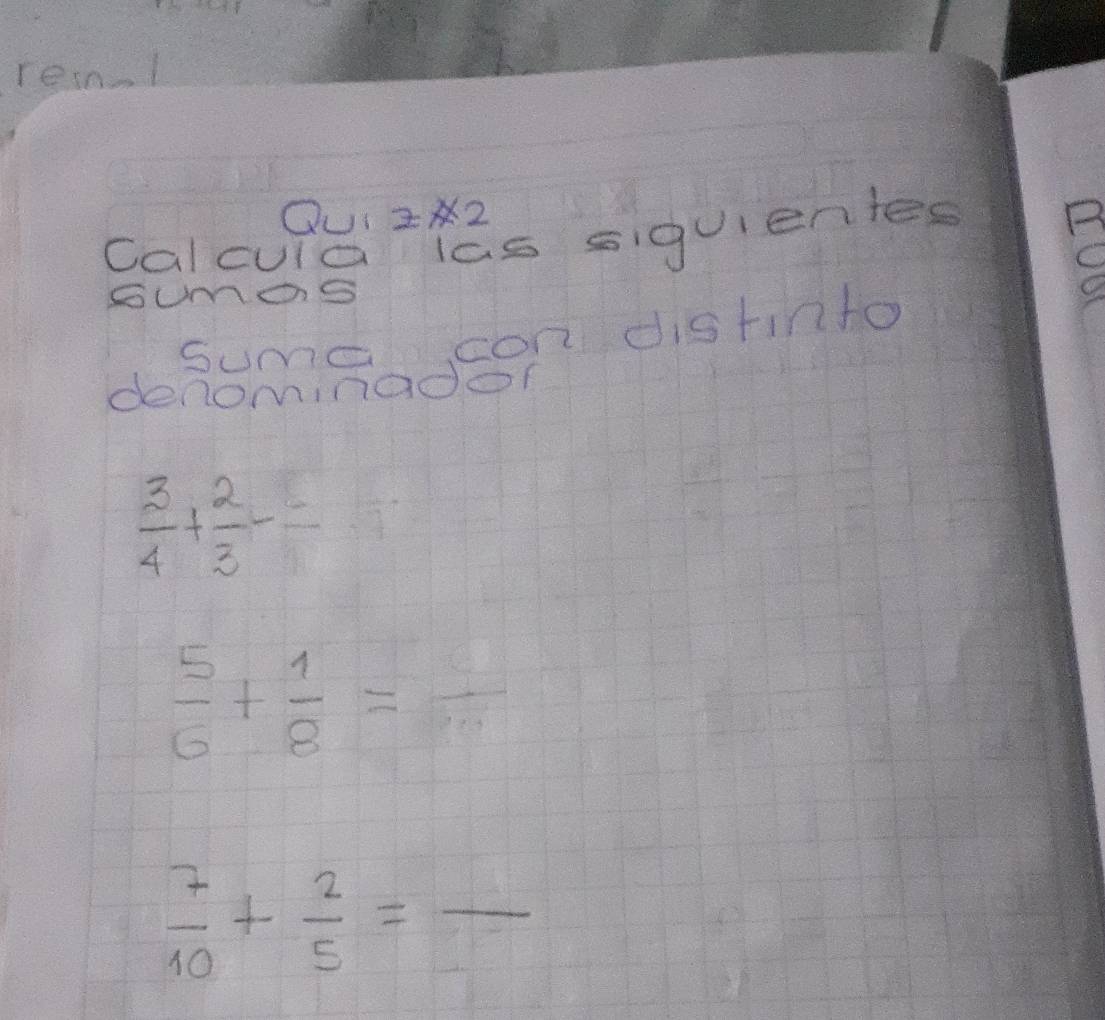 Quiz #2
Calcula las siguientes
sumas
Suma con distinto
denominador
3/4 + 2/3 -
5/6 + 1/8 =
7/10 + 2/5 =